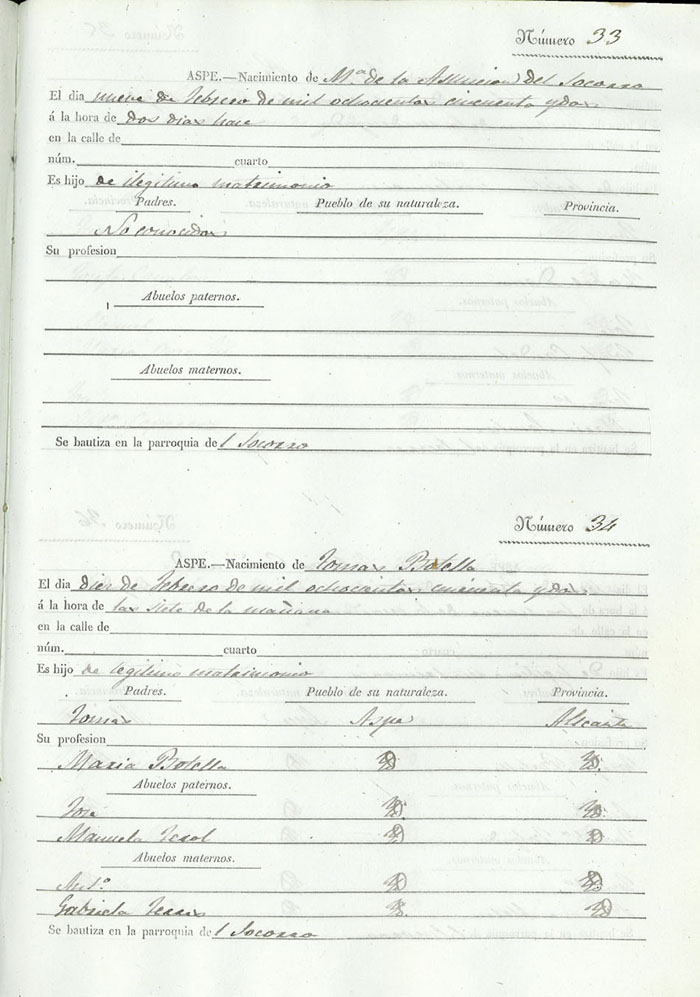 Número 33
ASPE.—Nacimiento de Mª de la Asuncion del Socorro
El dia nueve de Febrero de mil ochocientos cincuenta y dos
á la hora de dos dias hace
en la calle de
núm. cuarto
Es hijo de ilegitimo matrimonio
Padres. Pueblo de su naturaleza. Provincia.
No conocidos
Su profesion
Abuelos paternos.
Abuelos maternos.
Se bautiza en la parroquia del Socorro
Número 34
ASPE.—Nacimiento de Tomas Botella
El dia diez de Febrero de mil ochocientos cincuenta y dos
á la hora de las siete de la mañana
en la calle de
núm. cuarto
Es hijo de legitimo matrimonio
Padres. Pueblo de su naturaleza. Provincia.
Tomas Aspe Alicante
Su profesion
Maria Botella
Abuelos paternos.
José
Manuela
Abuelos maternos.
Antº
Gabriela
Se bautiza en la parroquia del Socorro